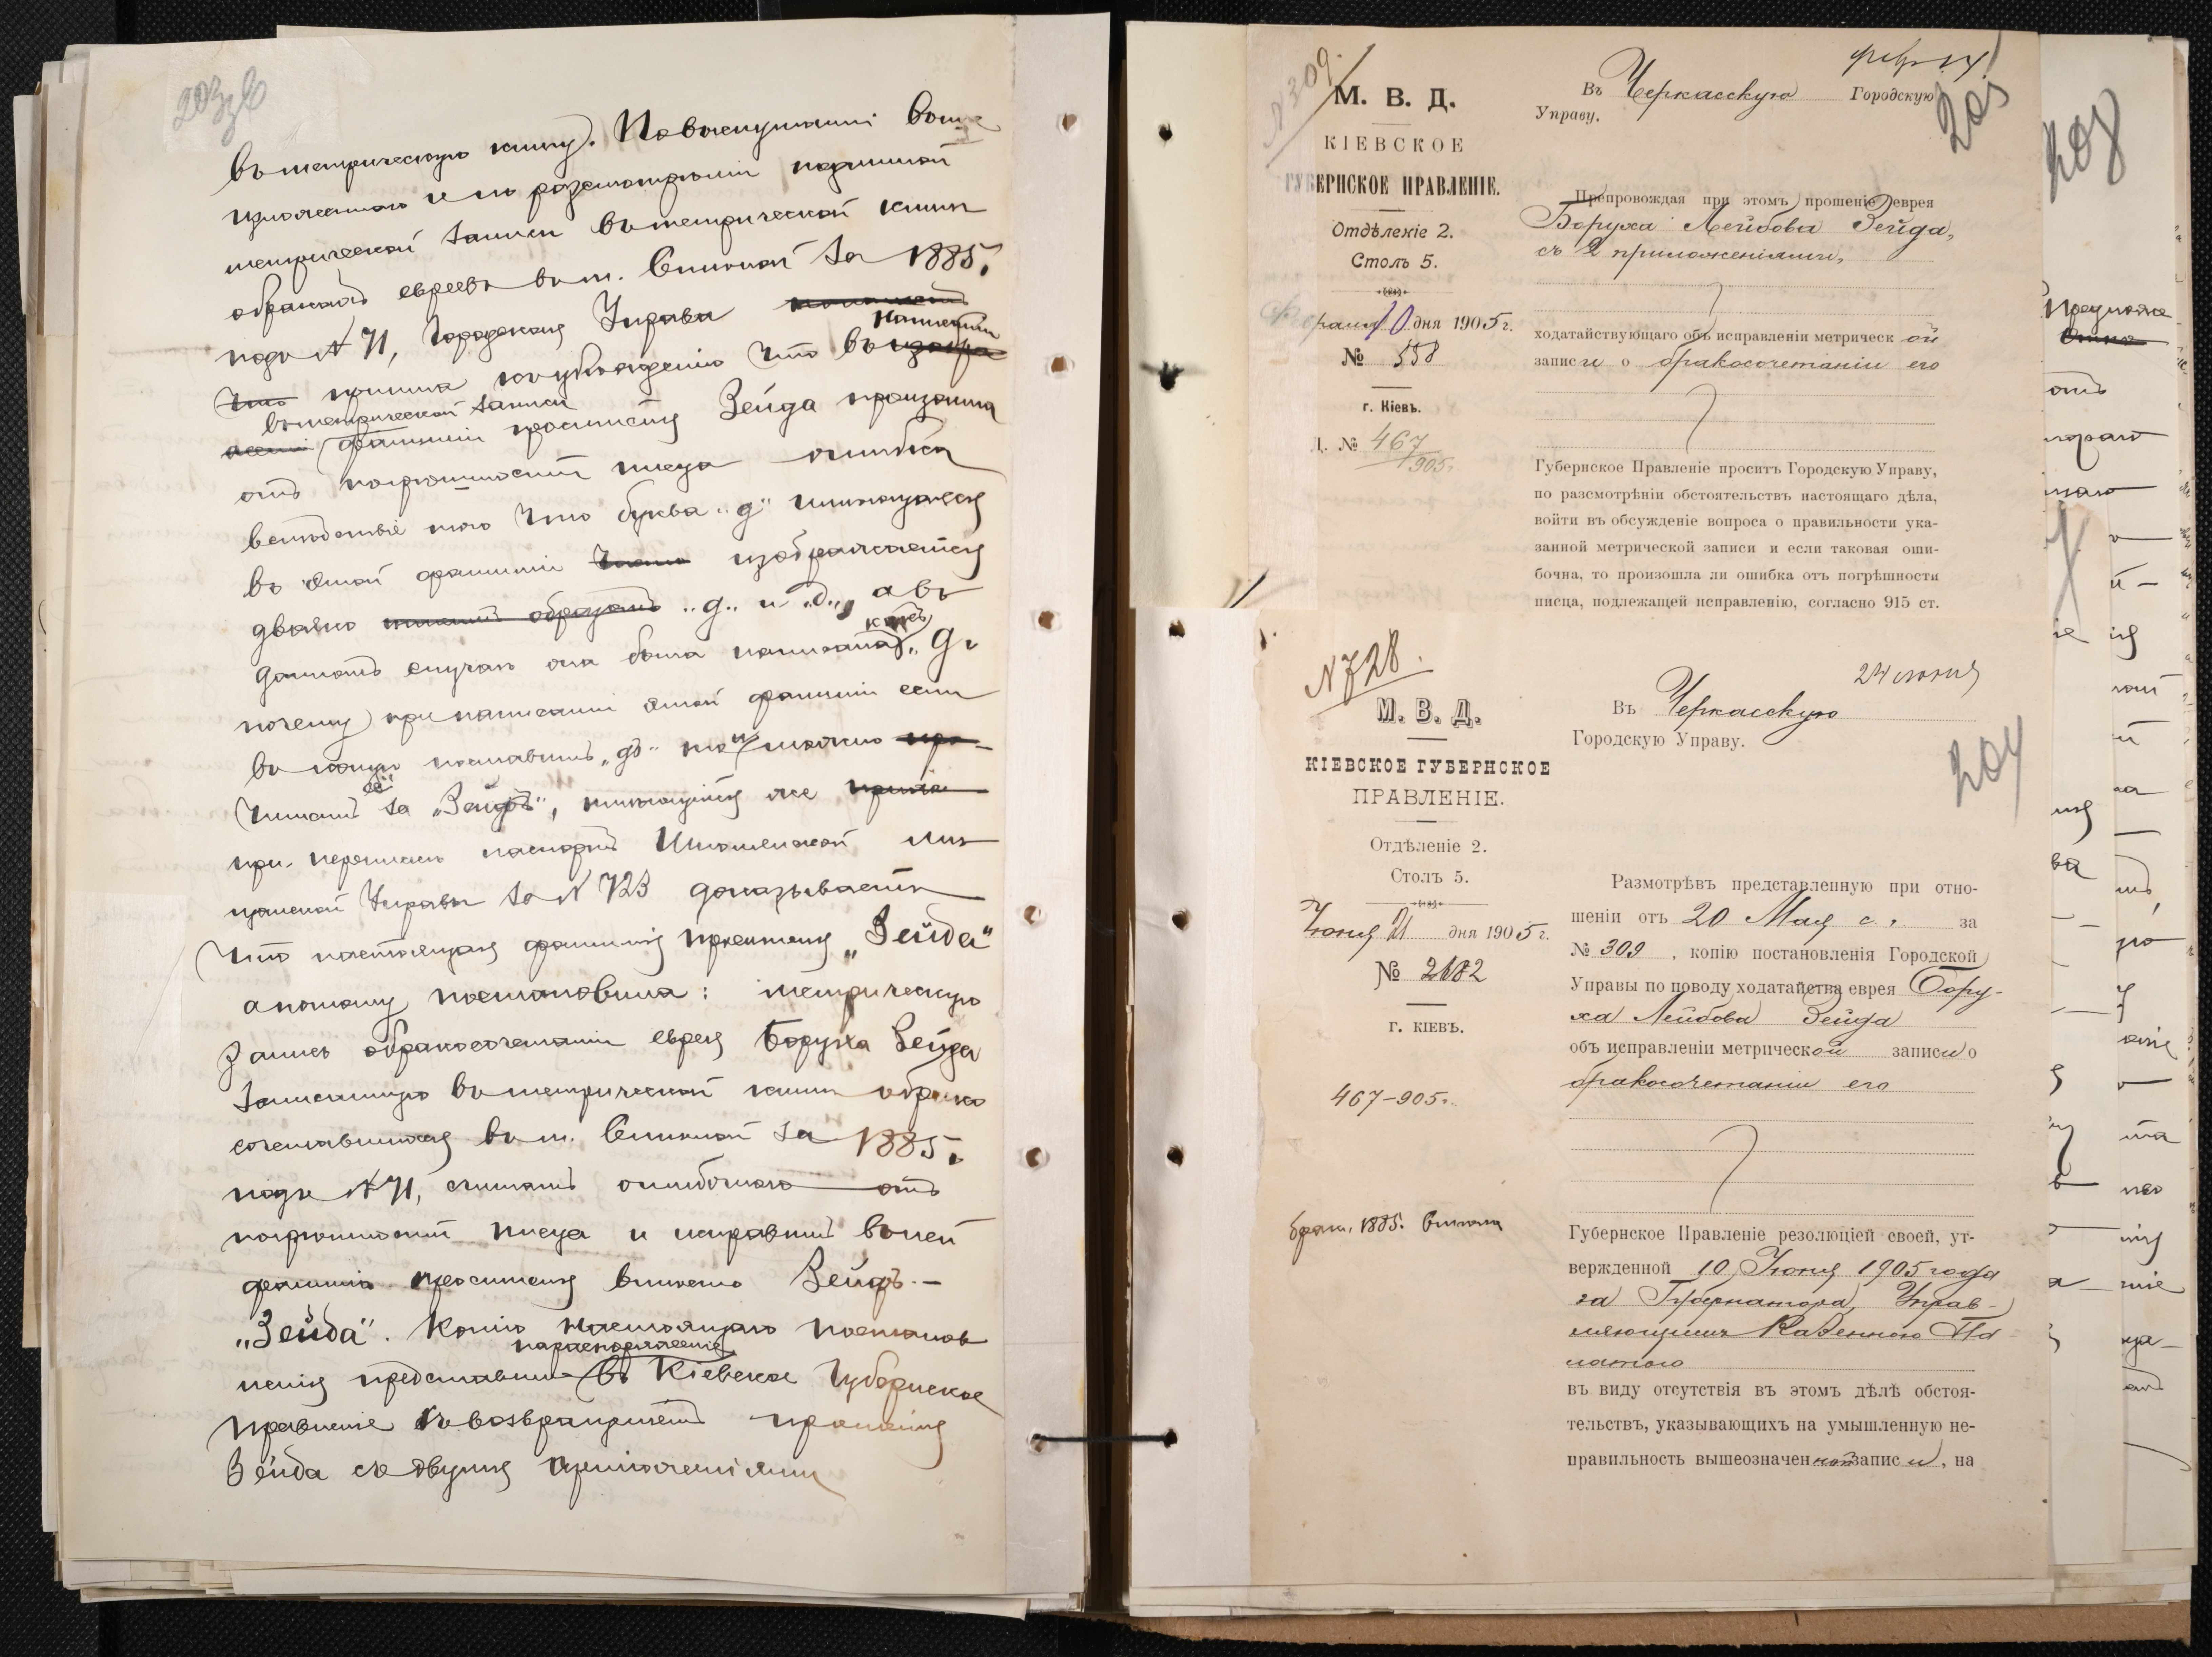 въ метрическую книгу. По выслушаніи выше
изложеннаго и по разсмотрѣніи подлинной
метрической записи въ метрической книгѣ
о бракахъ евреевъ въ м. за 1885 г.
подъ № 71, Городская Управа
пришла къ убѣжденію что въ
написаніи
въ метрической записи
фамиліи просителя Зейда произошла
отъ погрѣшности писца ошибка
вслѣдствіе того что буква „д“ имѣющаяся
въ этой фамиліи изображается
двояко „g„ и „д„, а въ
данномъ случаѣ она была написана какъ „g„
почему при написаніи этой фамиліи если
въ концѣ поставить „ъ“ то и можно
читать ее за „Зейдъ“, имѣющійся же
при перепискѣ паспортъ Мѣ
щанской Управы за № 723 доказываетъ
что настоящая фамилія просителя „Зейда“
а потому постановила: метрическую
запись о бракосочетаніи еврея Боруха Зейда
записанную въ метрической книгѣ о брако
сочетавшихся въ м. за 1885 г.
подъ № 71, считать ошибочною отъ
погрѣшности писца и исправить въ ней
фамилію просителя вмѣсто Зейдъ —
„Зейда“. Копію настоящаго постанов
на распоряженіе
ленія представить въ Кіевское Губернское
Правленіе съ возвращеніемъ прошенія
Зейда съ двумя приложеніями
№ 309.
М. В. Д.
КІЕВСКОЕ
ГУБЕРНСКОЕ ПРАВЛЕНІЕ.
Отдѣленіе 2.
Столъ 5.
Февраля 10 дня 1905 г.
№ 558
г. Кіевъ.
Д. № 467/905.
203
Въ Черкасскую Городскую
Управу.
Препровождая при этомъ прошеніе еврея
Боруха Лейбова Зейда,
съ 2 приложеніями,
ходатайствующаго объ исправленіи метрическ ой
записи о бракосочетаніи его
Губернское Правленіе проситъ Городскую Управу,
по разсмотрѣніи обстоятельствъ настоящаго дѣла,
войти въ обсужденіе вопроса о правильности ука-
занной метрической записи и если таковая оши-
бочна, то произошла ли ошибка отъ погрѣшности
писца, подлежащей исправленію, согласно 915 ст.
№ 728.
М. В. Д.
КІЕВСКОЕ ГУБЕРНСКОЕ
ПРАВЛЕНІЕ.
Отдѣленіе 2.
Столъ 5.
Іюня 21 дня 1905 г.
№ 2182
г. КІЕВЪ.
467-905.
брак. 1885.
24 іюня
204
Въ Черкасскую
Городскую Управу.
Размотрѣвъ представленную при отно-
шеніи отъ 20 Мая с. г. за
№ 309, копію постановленія Городской
Управы по поводу ходатайства еврея Бору-
ха Лейбова Зейда
объ исправленіи метрической записи о
бракосочетаніи его
Губернское Правленіе резолюціей своей, ут-
вержденной 10 Іюня 1905 года
за Губернатора, Управ-
ляющимъ Казенною Па
латою
въ виду отсутствія въ этомъ дѣлѣ обстоя-
тельствъ, указывающихъ на умышленную не-
правильность вышеозначенной записи, на
208